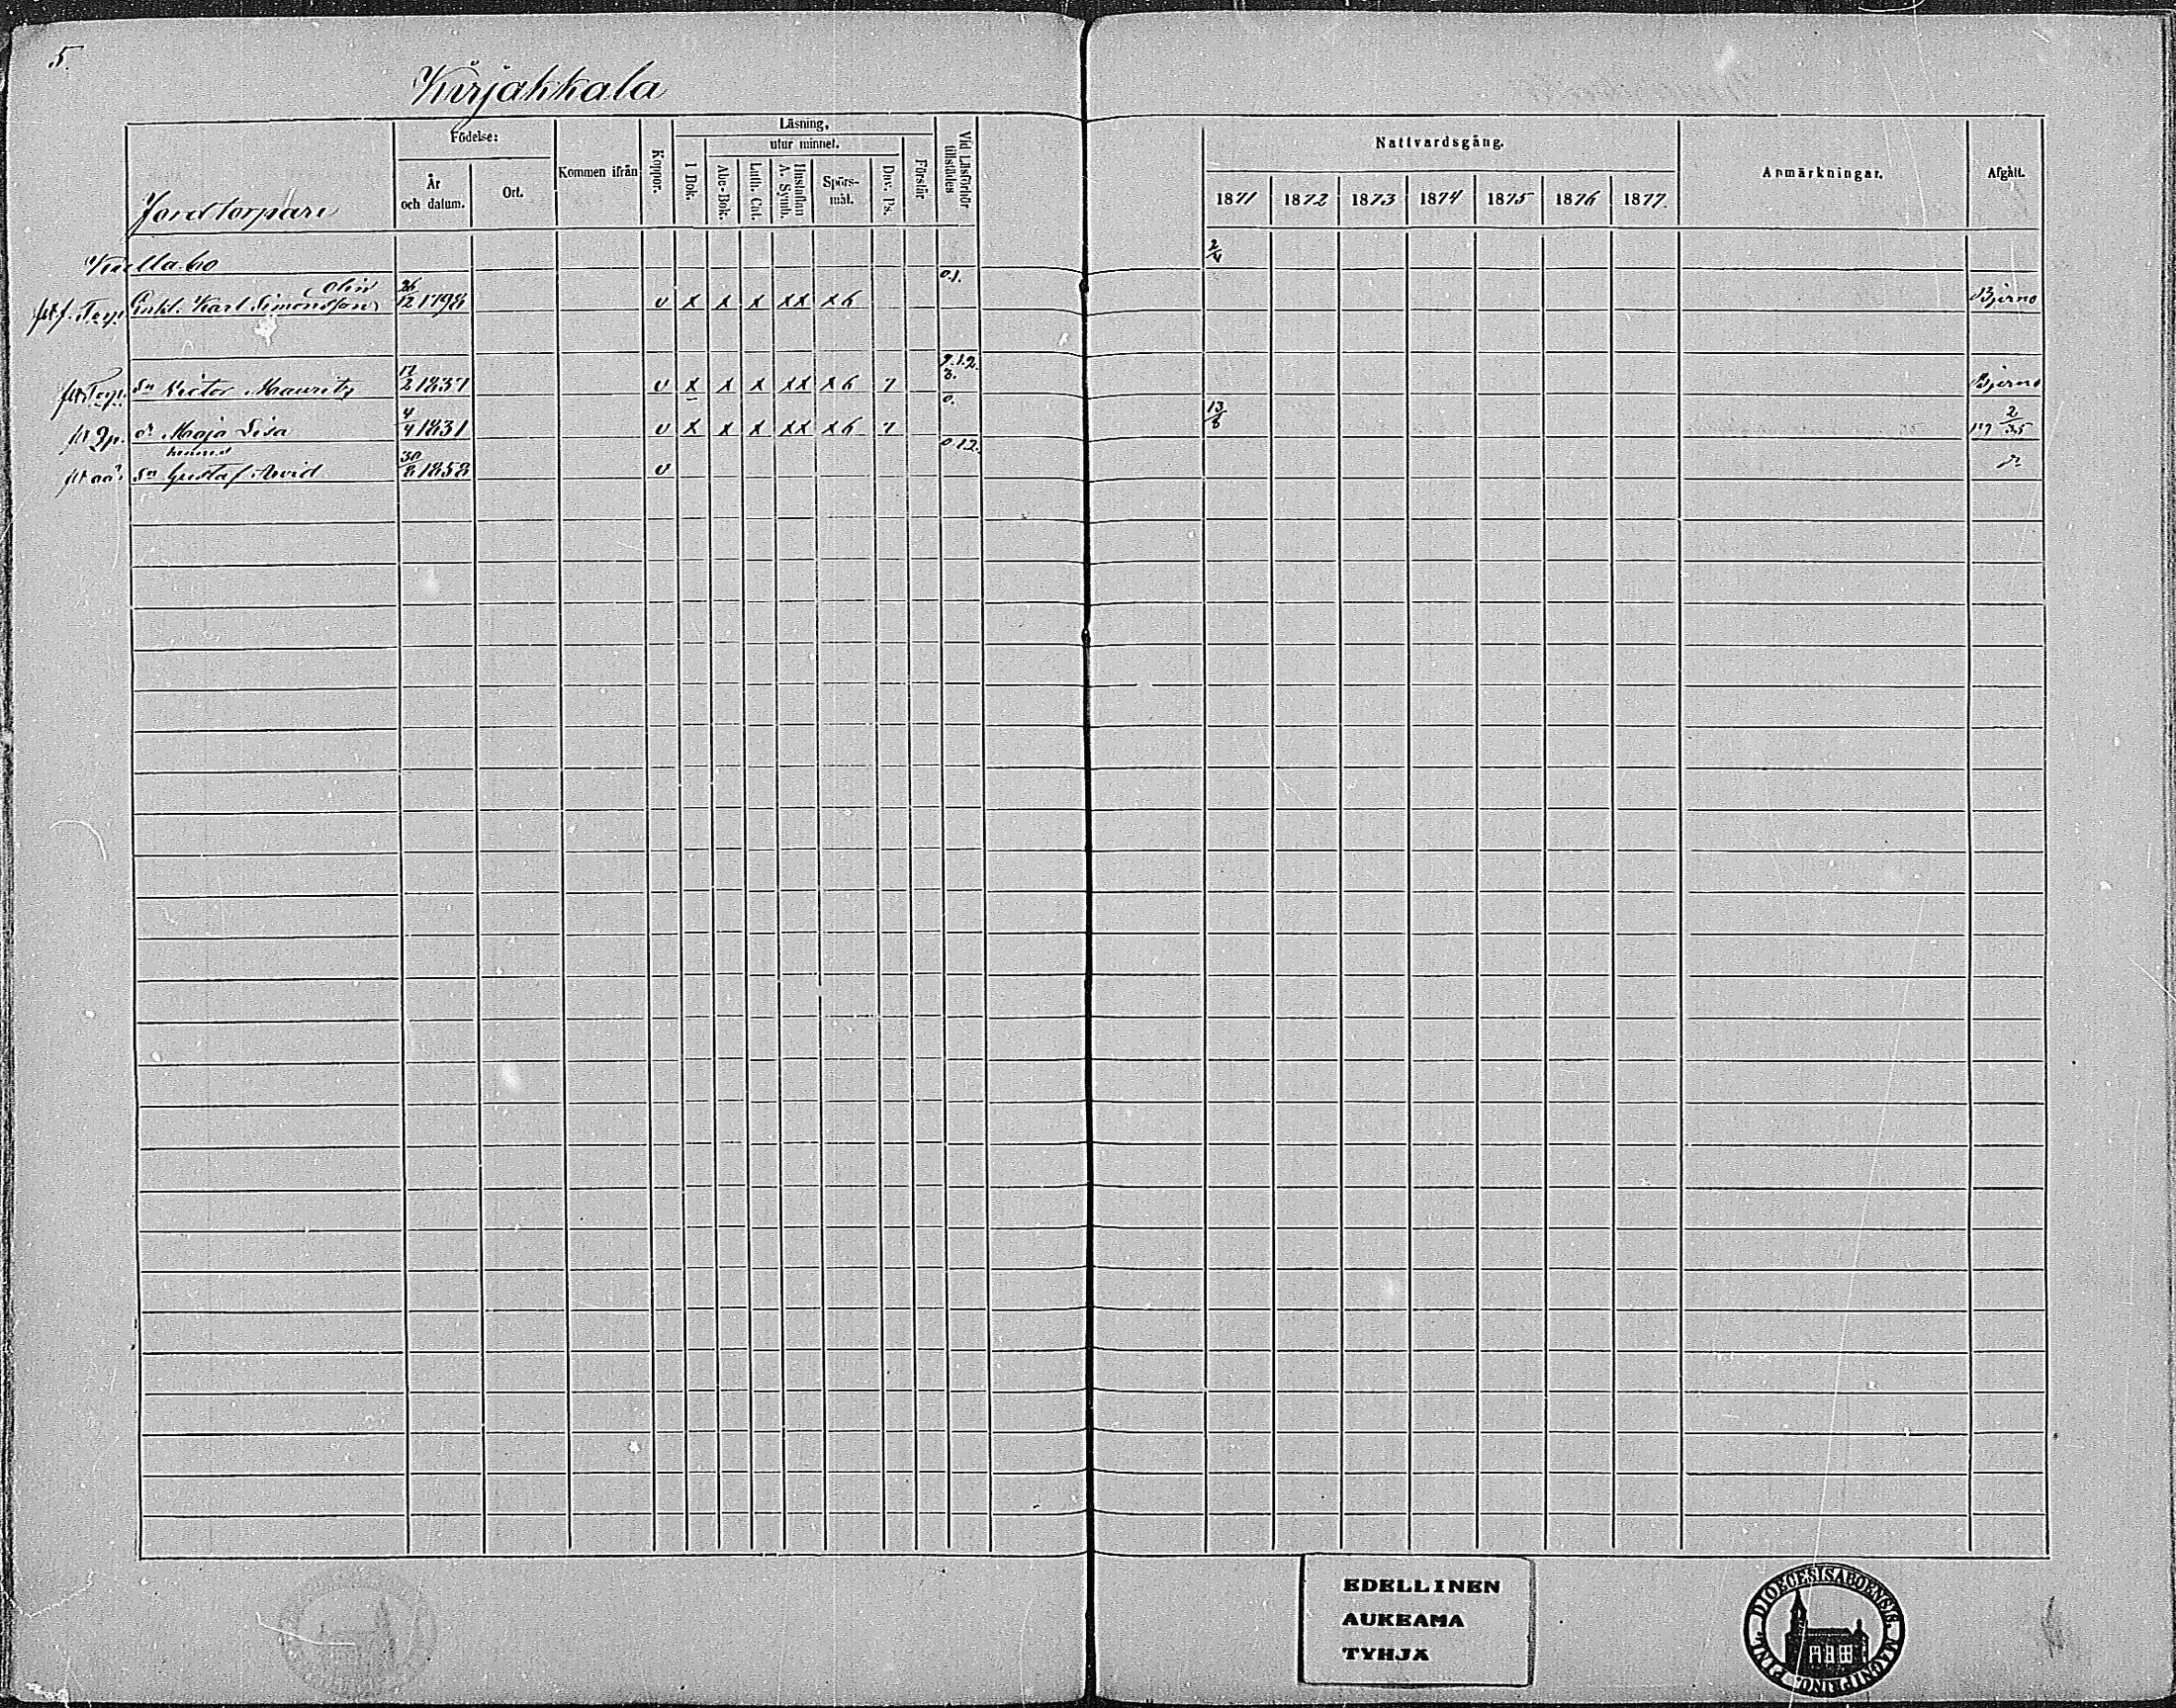 5.
Kirjakkala
Jordtorpare
Födelse:
År och datum.
Ort.
Kommen ifrån
Koppor.
Läsning,
utur minnet.
I Bok.
Abc-Bok.
Luth. Cat.
Hustaflan A. Symb.
Spörsmål.
Dav. Ps.
Förstår
Vid Läsförhör tillstädes
Nattvardsgång.
1871 1872 1873 1874 1875 1876 1877.
Anmärkningar.
Afgått.
2/4
0.1.
Olin
Enkl. Karl Simonsson 26/12 1798 v x x x xx x6 Bjerno
9.1.2.
3.
Sn Victor Mauritz 17/2 1837 v x x x xx x6 7 Bjerno
0.
dr Maja Lisa 4/4 1831 v x x x xx x6 7 13/8
0.12.
hennes
Sn Gustaf Arvid 30/8 1858 v
EDELLINEN
AUKEAMA
TYHJÄ
DIOECESIS ABOENSIS. MAGNI PRINC. FINL.